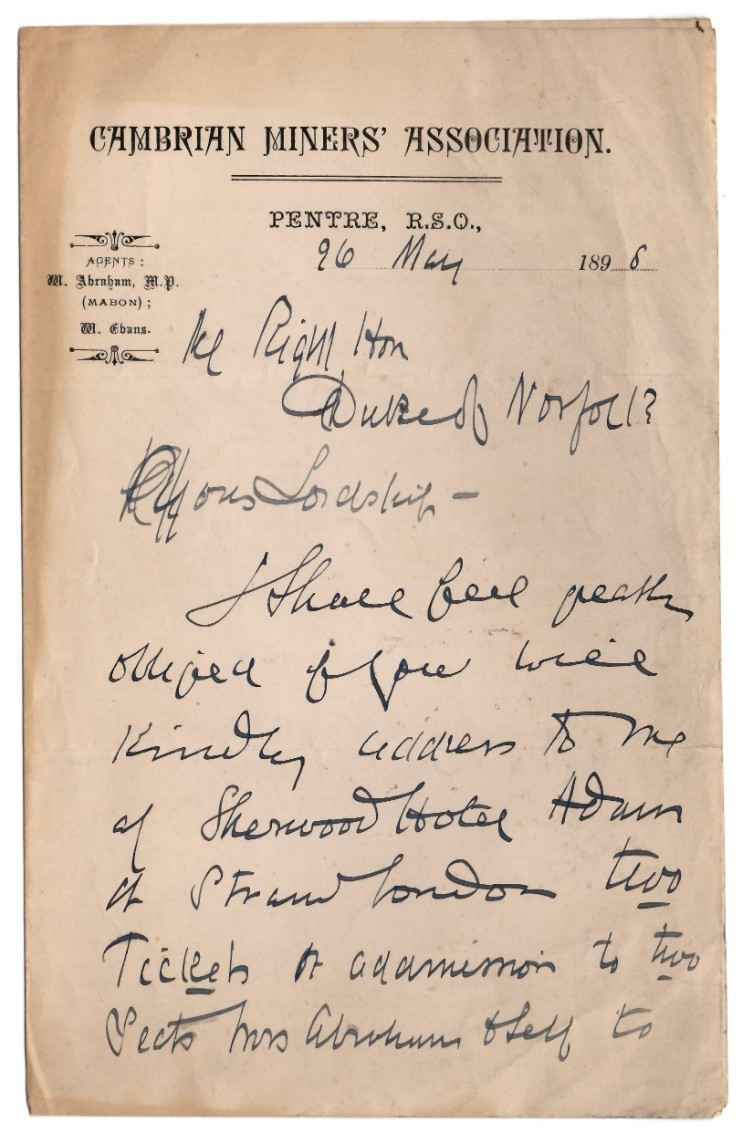 CAMBRIAN MINERS' ASSOCIATION.
PENTRE, R.S.O.,
26 May 1896
AGENTS :
W. Abraham, M.P.
(MABON) ;
W. Evans.
Right Hon
Duke of Norfolk
Your Lordship —
I Shall feel greatly
obliged if you will
Kindly address to me
at Sherwood Hotel Adam
St Strand London two
Tickets of adamission to two
Seats Mrs Abraham & Self to